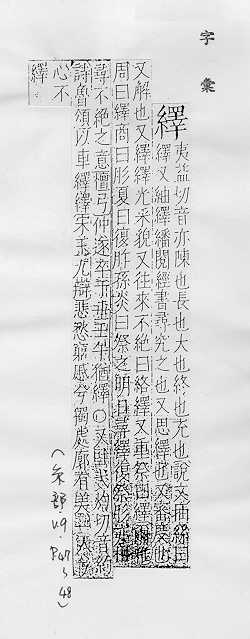 字彙
繹
夷益切音亦陳也長也大也終也充也說文抽絲曰
繹又紬繹繙閱經書尋究之也又思繹也又審度也
又解也又繹繹光采貌又往來不絕曰絡繹又重祭曰繹爾雅
周曰繹商曰肜夏曰復胙孫炎曰祭之明日尋繹復祭肜者相
尋不絕之意檀弓仲遂卒于垂壬午猶繹○又
切音約
詩魯頌以車繹繹宋玉九辯悲愁窮戚兮獨處廓有美一人兮
心不
繹